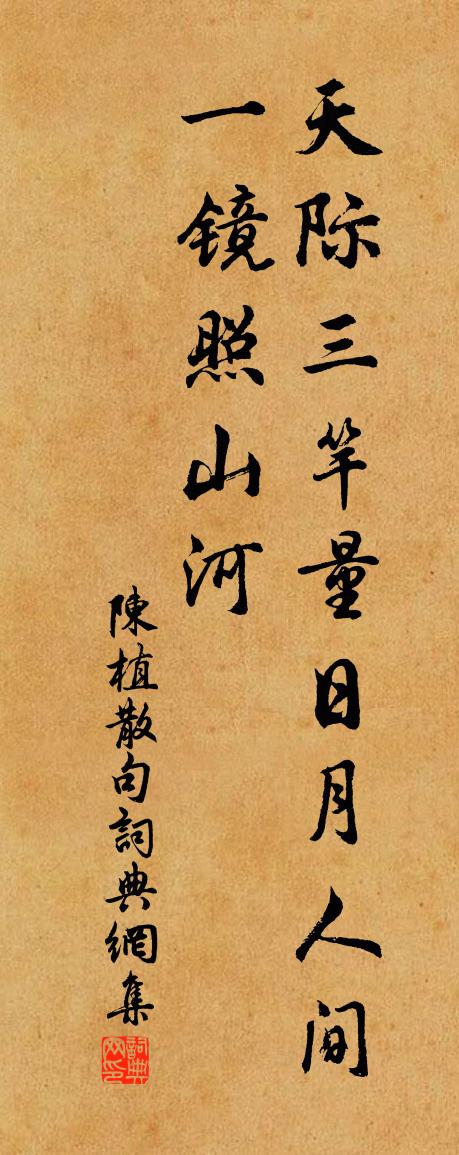 天际三竿量日月人间
一镜照山河
陳植散句詞典網集
詞典網印